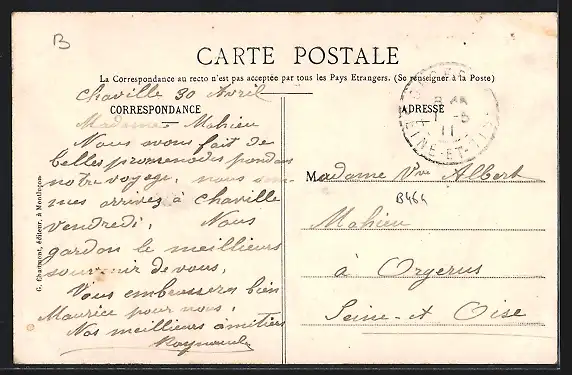 B
CARTE POSTALE
La Correspondance au recto n'est pas acceptée par tous les Pays Etrangers. (Se renseigner à la Poste)
CORRESPONDANCE
ADRESSE
chaville 30 Avril
Madame Mahieu
Nous avons fait de
belles promenades pendan
notre voyage, nous som
mes arrivés à chaville
vendredi, Nous
gardon le meillieurs
souvenir de vous,
Vous embrasserez bien
Maurice pour nous,
Nos meillieurs amitiés
Raymond
G. Chaumont, éditeur, à Montluçon
Madame Vve Albert
B464
Mahieu
à Orgerus
Seine-et Oise
11
SEINE-ET-OISE